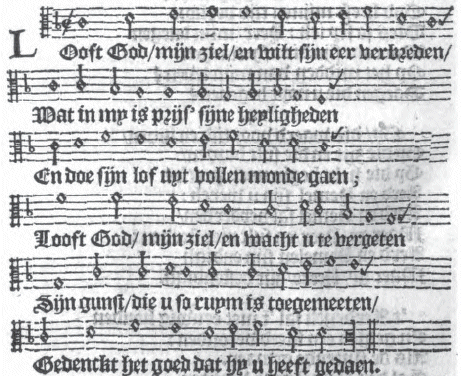 Looft God/mijn ziel/en wilt sijn eer verbreden/
Wat in my is prijs' sijne heyligheden
En doe sijn lof uyt vollen monde gaen;
Looft God/mijn ziel/en wacht u te vergeten
Sijn gunst/die u so ruym is toegemeeten/
Gedenckt het goed dat hy u heeft gedaen.